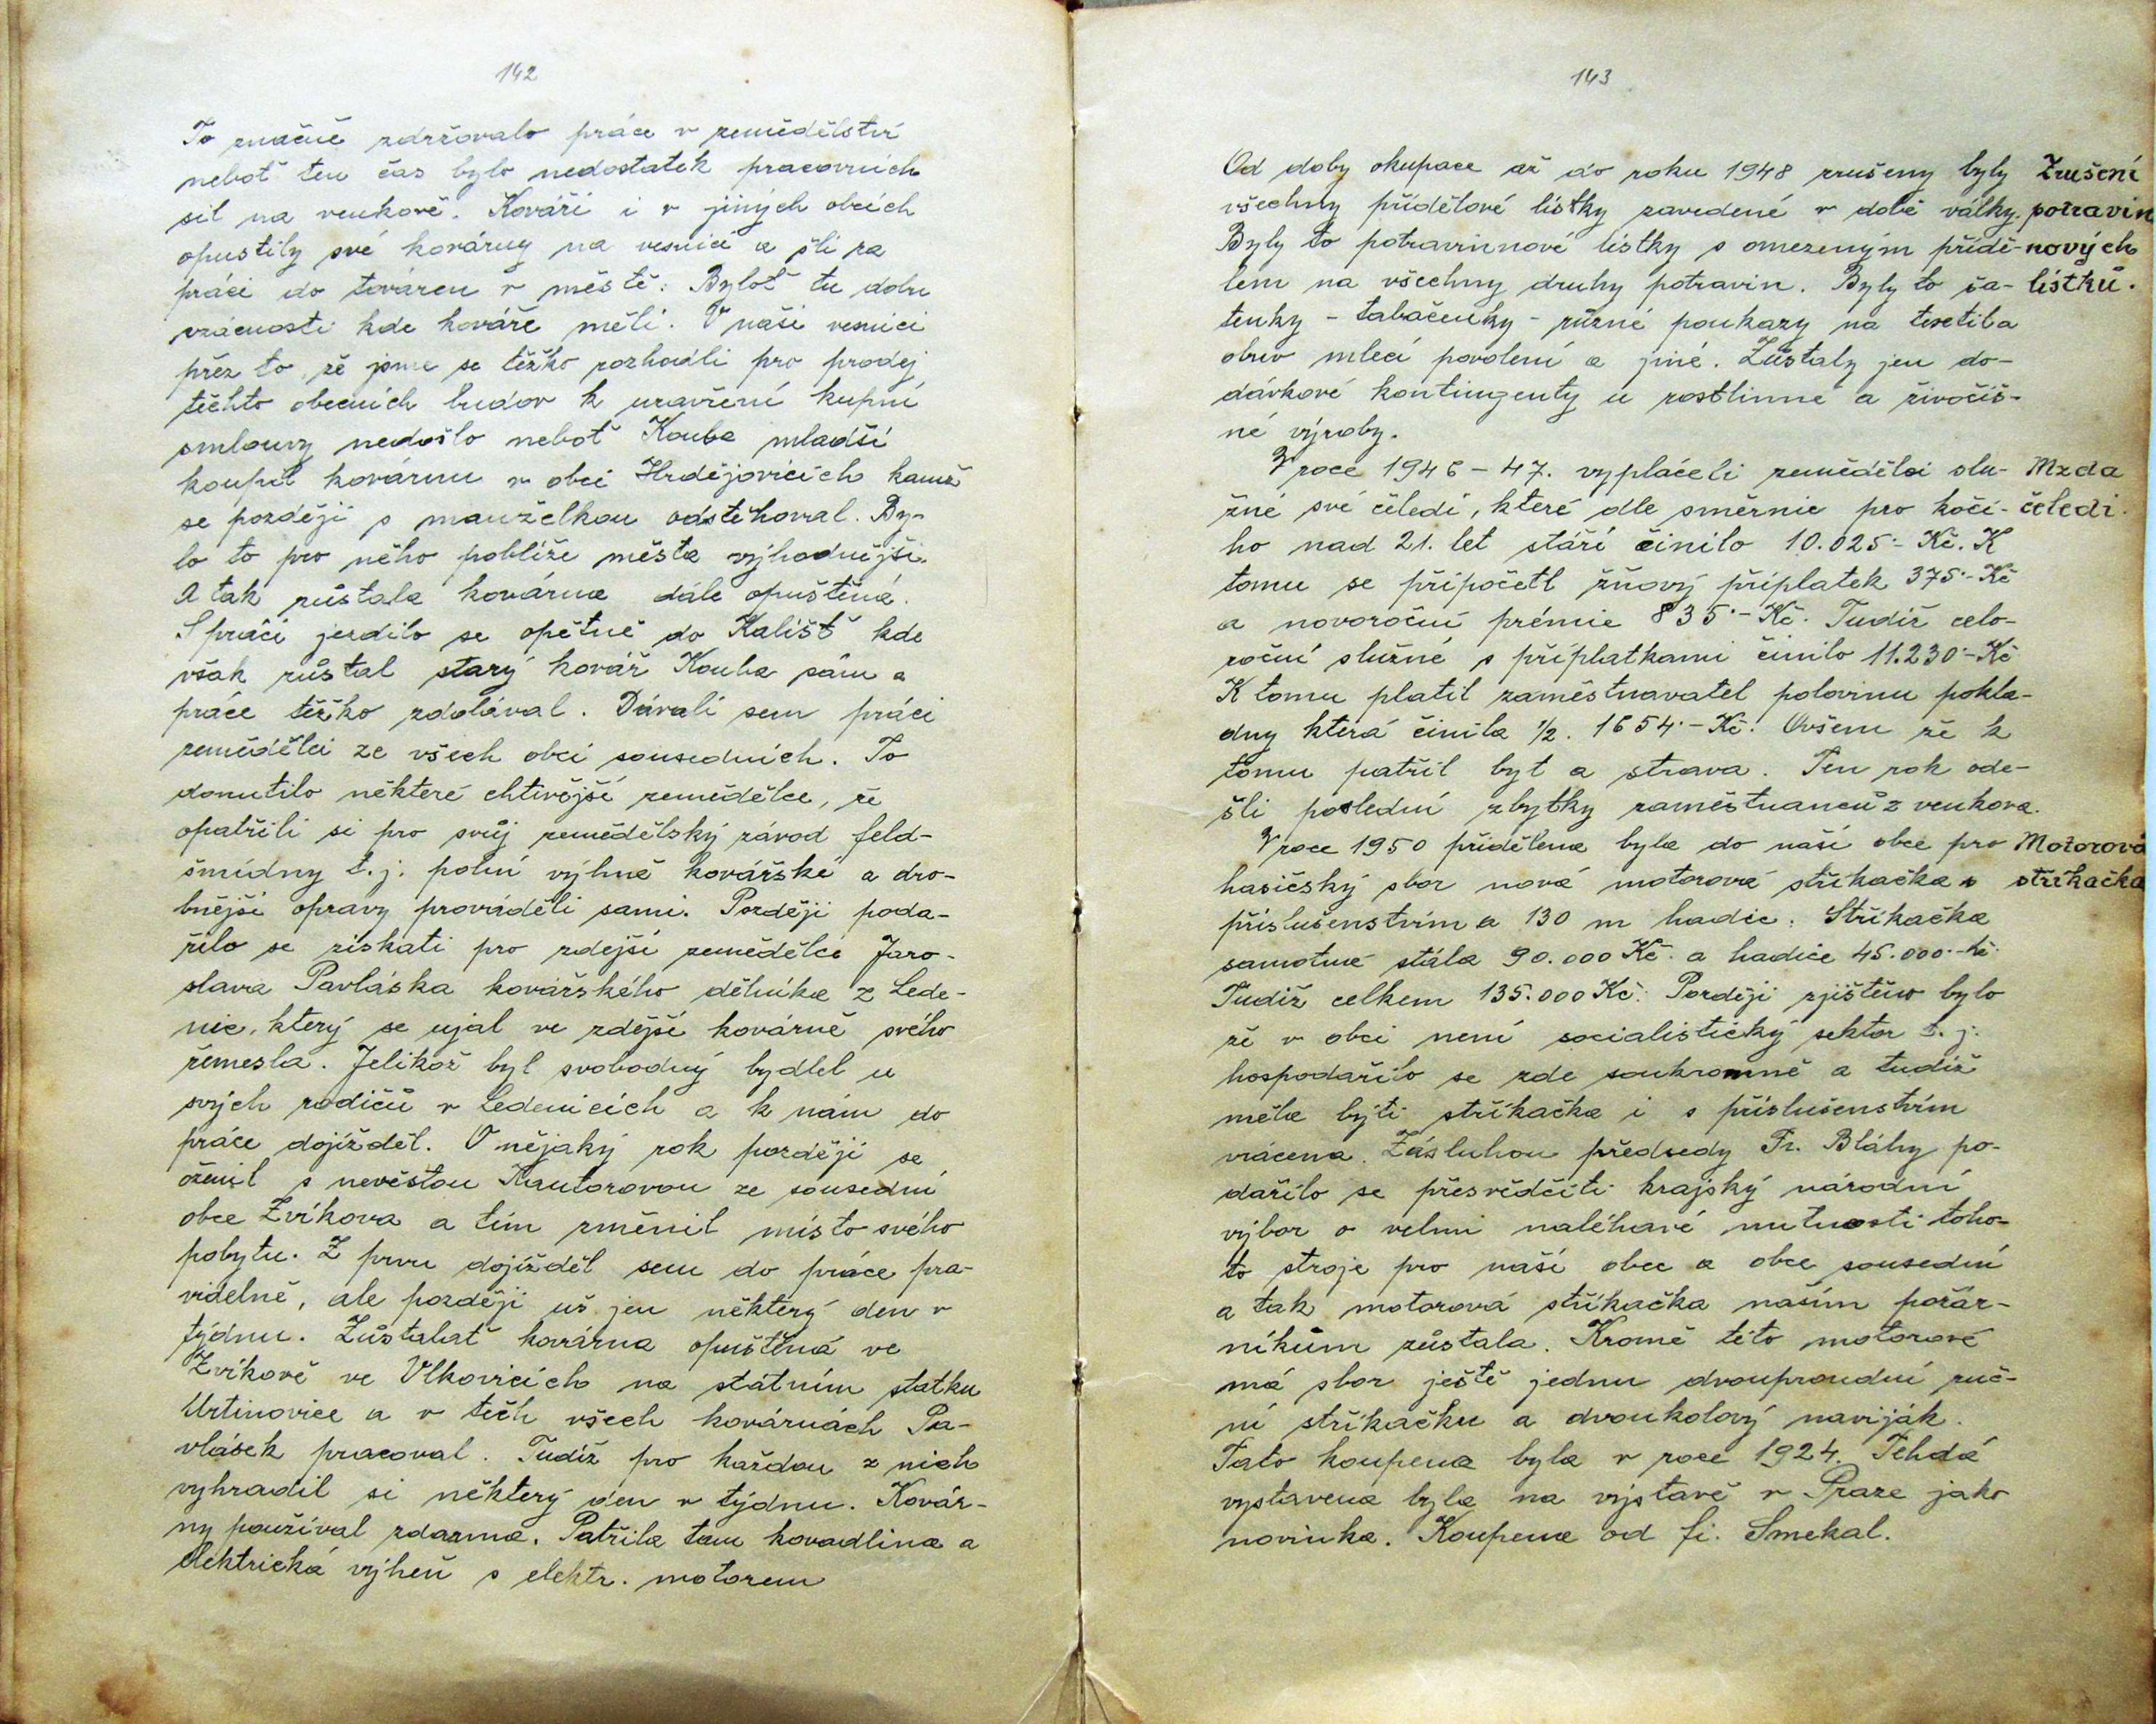 142
To značně zdržovalo práce v zemědělství
neboť ten čas bylo nedostatek pracovních
sil na venkově. Kováři i v jiných obcích
opustily své kovárny na vesnici a šli za
práci do továren v městě. Byloť tu dobu
vzácností kde kováře měli. V naši vesnici
přez to, že jsme se těžko rozhodli pro prodej
těchto obecních budov k uzavření kupní
smlouvy nedošlo neboť Kouba mladší
koupil kovárnu v obci Hrdějovicích kamž
se později s manželkou odstěhoval. By-
lo to pro něho poblíže města výhodnější.
A tak zůstala kovárna dále opuštěná.
S prácí jezdilo se opětně do Kališť kde
však zůstal starý kovář Kouba sám a
práce těžko zdolával. Dávali sem práci
zemědělci ze všech obcí sousedních. To
donutilo některé chtivější zemědělce, že
opatřili si pro svůj zemědělský závod feld-
šmídny t.j. polní výhně kovářské a dro-
bnější opravy prováděli sami. Později poda-
řilo se získati pro zdejší zemědělce Jaro-
slava Pavláska kovářského dělníka z Lede-
nic, který se ujal ve zdější kovárně svého
řemesla. Jelikož byl svobodný bydlel u
svých rodičů v Ledenicích a k nám do
práce dojížděl. O nějaký rok později se
oženil s nevěstou Kantorovou ze sousední
obce Zvíkova a tím změnil místo svého
pobytu. Z prvu dojížděl sem do práce pra-
videlně, ale později už jen některý den v
týdnu. Zůstalať kovárna opuštěná ve
Zvíkově ve Vlkovicích na státním statku
Urtinovice a v těch všech kovárnách Pa-
vlásek pracoval. Tudíž pro každou z nich
vyhradil si některý den v týdnu. Kovár-
ny používal zdarma. Patřila tam kovadlina a
elektrická výheň s elektr. motorem
143
Od doby okupace až do roku 1948 zrušeny byly Zrušení
všechny přídělové lístky zavedené v době války. potravin
Byly to potravinnové lístky s omezeným přídě- nových
lem na všechny druhy potravin. Byly to ša- lístků.
tenky - tabačenky - různé poukazy na texetilia
obuv mlecí povolení a jiné. Zůstaly jen do-
dávkové kontingenty u rostlinné a živočiš-
né výroby.
V roce 1946 - 47. vypláceli zemědělci slu- Mzda
žné své čeledi, které dle směrnic pro kočí- čeledi.
ho nad 21. let stáří činilo 10.025·- Kč. K
tomu se připočetl žňový příplatek 375·- Kč
a novoroční prémie 835·- Kč. Tudíž celo-
roční služné s příplatkami činilo 11.230·- Kč
K tomu platil zaměstnavatel polovinu pokla-
dny která činila 1/2. 1654·- Kč. Ovšem že k
tomu patřil byt a strava. Ten rok ode-
šli poslední zbytky zaměstnanců z venkova.
V roce 1950 přidělena byla do naší obce pro Motorová
hasičský sbor nová motorová stříkačka s stříkačka
příslušenstvím a 130 m hadic. Stříkačka
samotná stála 90.000 Kč. a hadice 45.000·- Kč.
Tudíž celkem 135.000 Kč. Později zjištěno bylo
že v obci není socialistický sektor t.j.
hospodařilo se zde soukromně a tudíž
měla býti stříkačka i s příslušenstvím
vrácena. Zásluhou předsedy Fr. Bláhy po-
dařilo se přesvědčiti krajský národní
výbor o velmi naléhavé nutnosti toho-
to stroje pro naší obec a obce sousední
a tak motorová stříkačka naším požár-
níkům zůstala. Kromě této motorové
má sbor ještě jednu dvouproudní ruč-
ní stříkačku a dvoukolový naviják.
Tato koupena byla v roce 1924. Tehdá
vystavena byla na výstavě v Praze jako
novinka. Koupena od fi. Smekal.